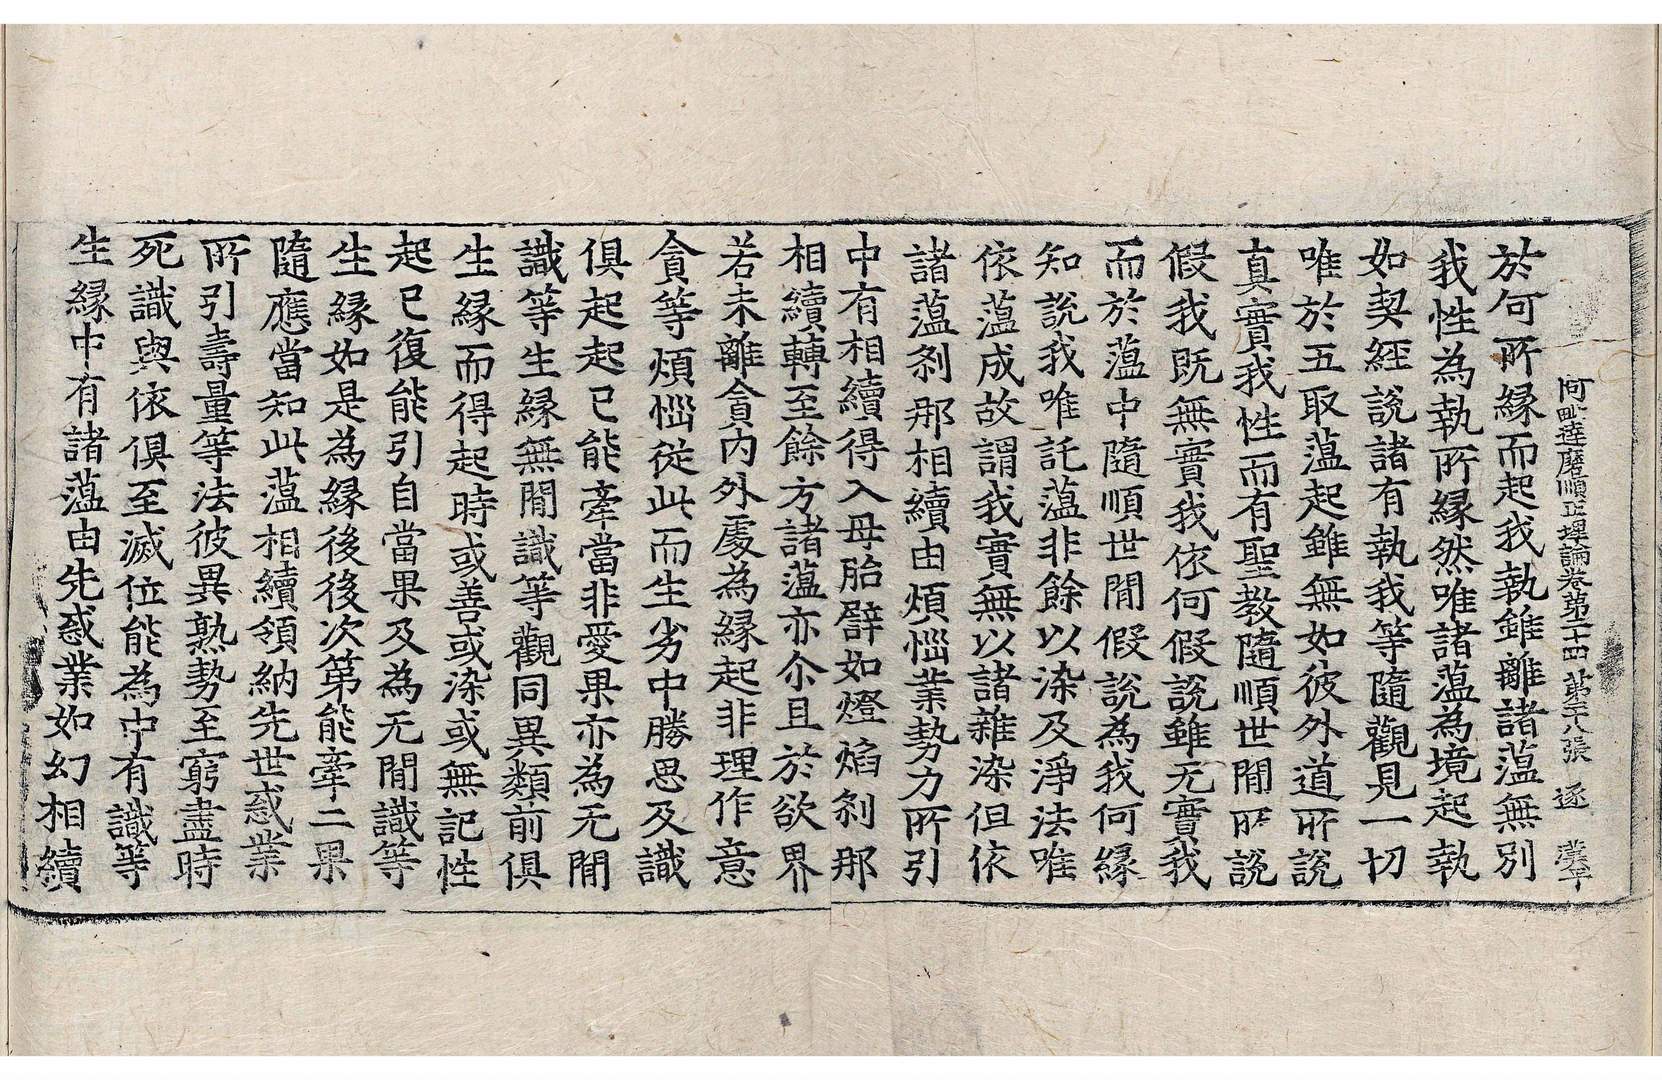 阿毗達磨順正理論卷第二十四 第二十八張 逐
於何所緣而起我執雖離諸蘊無別
我性為執所緣然唯諸蘊為境起執
如契經說諸有執我等隨觀見一切
唯於五取蘊起雖無如彼外道所說
真實我性而有聖教隨順世間所說
假我既無實我依何假說雖无實我
而於蘊中隨順世間假說為我何緣
知說我唯託蘊非餘以染及淨法唯
依蘊成故謂我實無以諸雜染但依
諸蘊剎那相續由煩惱業勢力所引
中有相續得入母胎譬如燈焰剎那
相續轉至餘方諸蘊亦尒且於欲界
若未離貪內外處為緣起非理作意
貪等煩惱從此而生劣中勝思及識
俱起起已能牽當非愛果亦為无間
識等生緣無間識等觀同異類前俱
生緣而得起時或善或染或無記性
起已復能引自當果及為无間識等
生緣如是為緣後後次第能牽二果
隨應當知此蘊相續領納先世惑業
所引壽量等法彼異熟勢至窮盡時
死識與依俱至滅位能為中有識等
生緣中有諸蘊由先惑業如幻相續